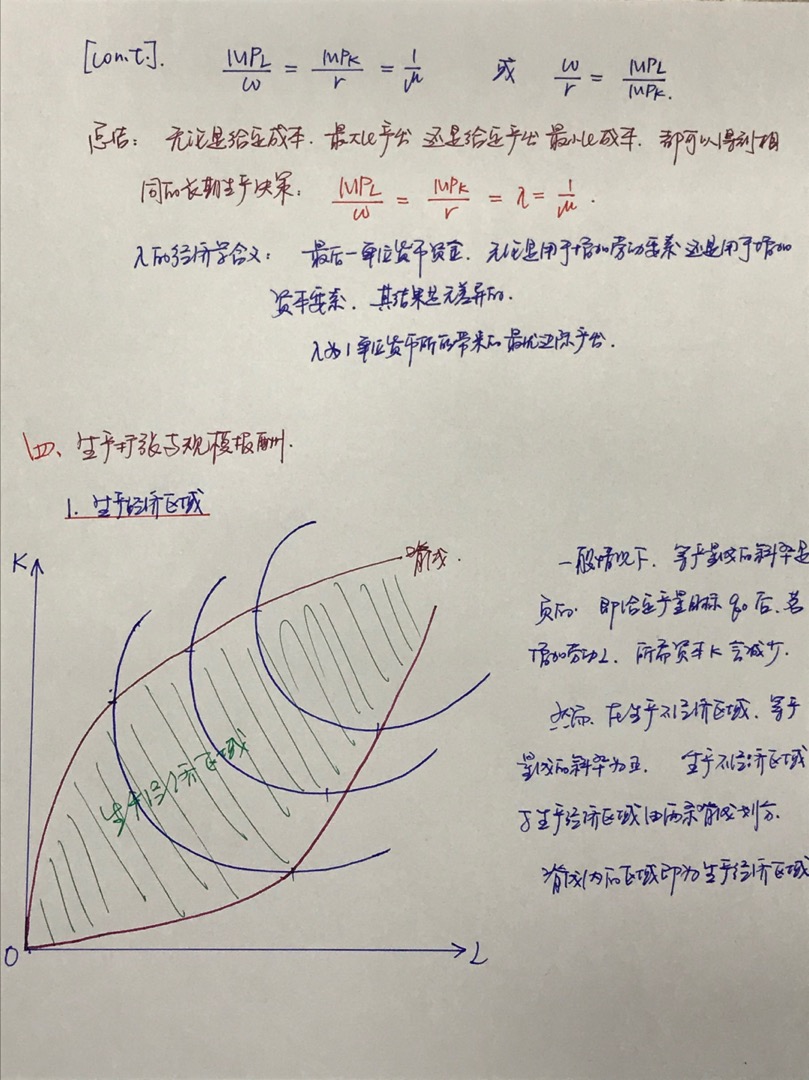 [cont.]. MPL/w = MPK/r = 1/μ 或 w/r = MPL/MPK.
总结: 无论是给定成本. 最大化产出 还是给定产出 最小化成本. 都可以得到相
同的长期生产决策: MPL/w = MPK/r = λ = 1/μ.
λ的经济学含义: 最后一单位货币资金. 无论是用于增加劳动要素 还是用于增加
资本要素. 其结果是无差异的.
λ为1单位货币所能带来的最优边际产出.
四、生产扩张与规模报酬.
1. 生产经济区域
K
脊线.
一般情况下. 等产量线的斜率是
负的. 即给定产量目标 q0 后. 若
增加劳动L. 所需资本K会减少.
然而. 在生产不经济区域. 等产
量线的斜率为正. 生产不经济区域
与生产经济区域由两条脊线划分.
脊线内的区域即为生产经济区域
生产经济区域
O
L